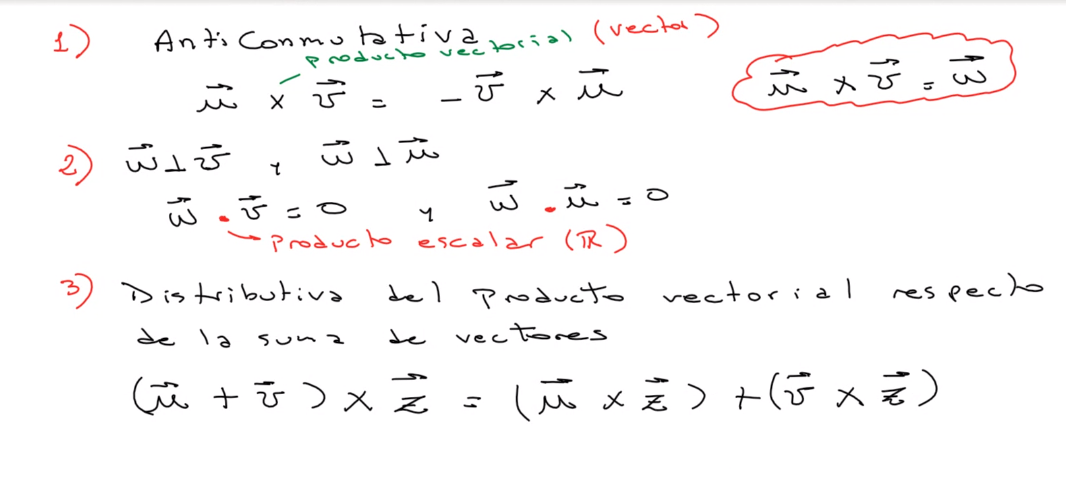 1) Anticonmutativa (vector)
producto vectorial
u⃗ × v⃗ = - v⃗ × u⃗
u⃗ × v⃗ = w⃗
2) w⃗ ⊥ v⃗ y w⃗ ⊥ u⃗
w⃗ · v⃗ = 0 y w⃗ · u⃗ = 0
→ producto escalar (ℝ)
3) Distributiva del producto vectorial respecto
de la suma de vectores
(u⃗ + v⃗) × z⃗ = (u⃗ × z⃗) + (v⃗ × z⃗)